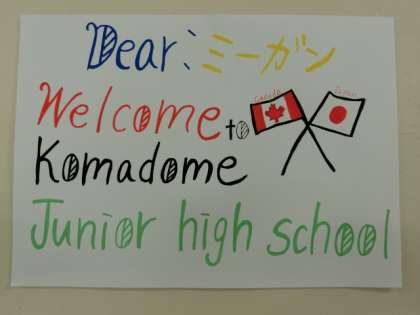 Dear: ミーガン
Welcome to
Canada Japan
Komadome
Junior high school